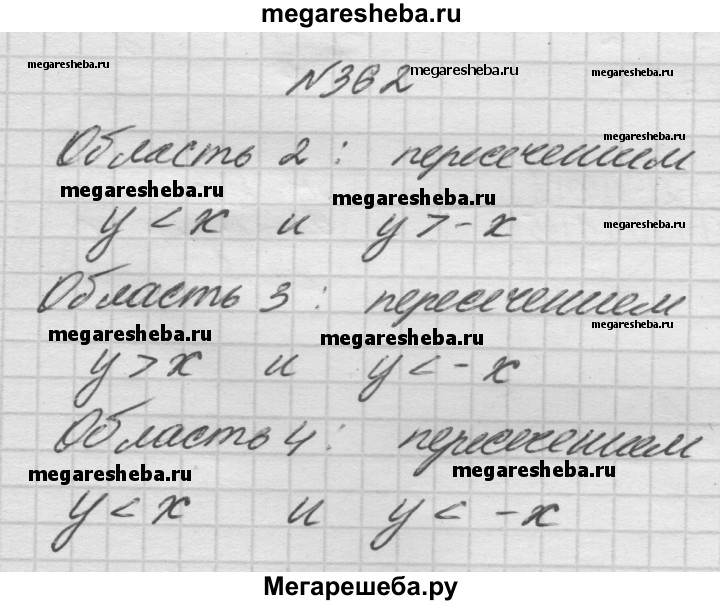 megaresheba.ru
megaresheba.ru
№362
megaresheba.ru
megaresheba.ru
megaresheba.ru
Область 2: пересечением
megaresheba.ru
megaresheba.ru
y < x и y > - x
megaresheba.ru
Область 3: пересечением
megaresheba.ru
megaresheba.ru
megaresheba.ru
y > x и y < - x
Область 4: пересечением
megaresheba.ru
megaresheba.ru
y < x и y < - x
Мегарешеба.ру